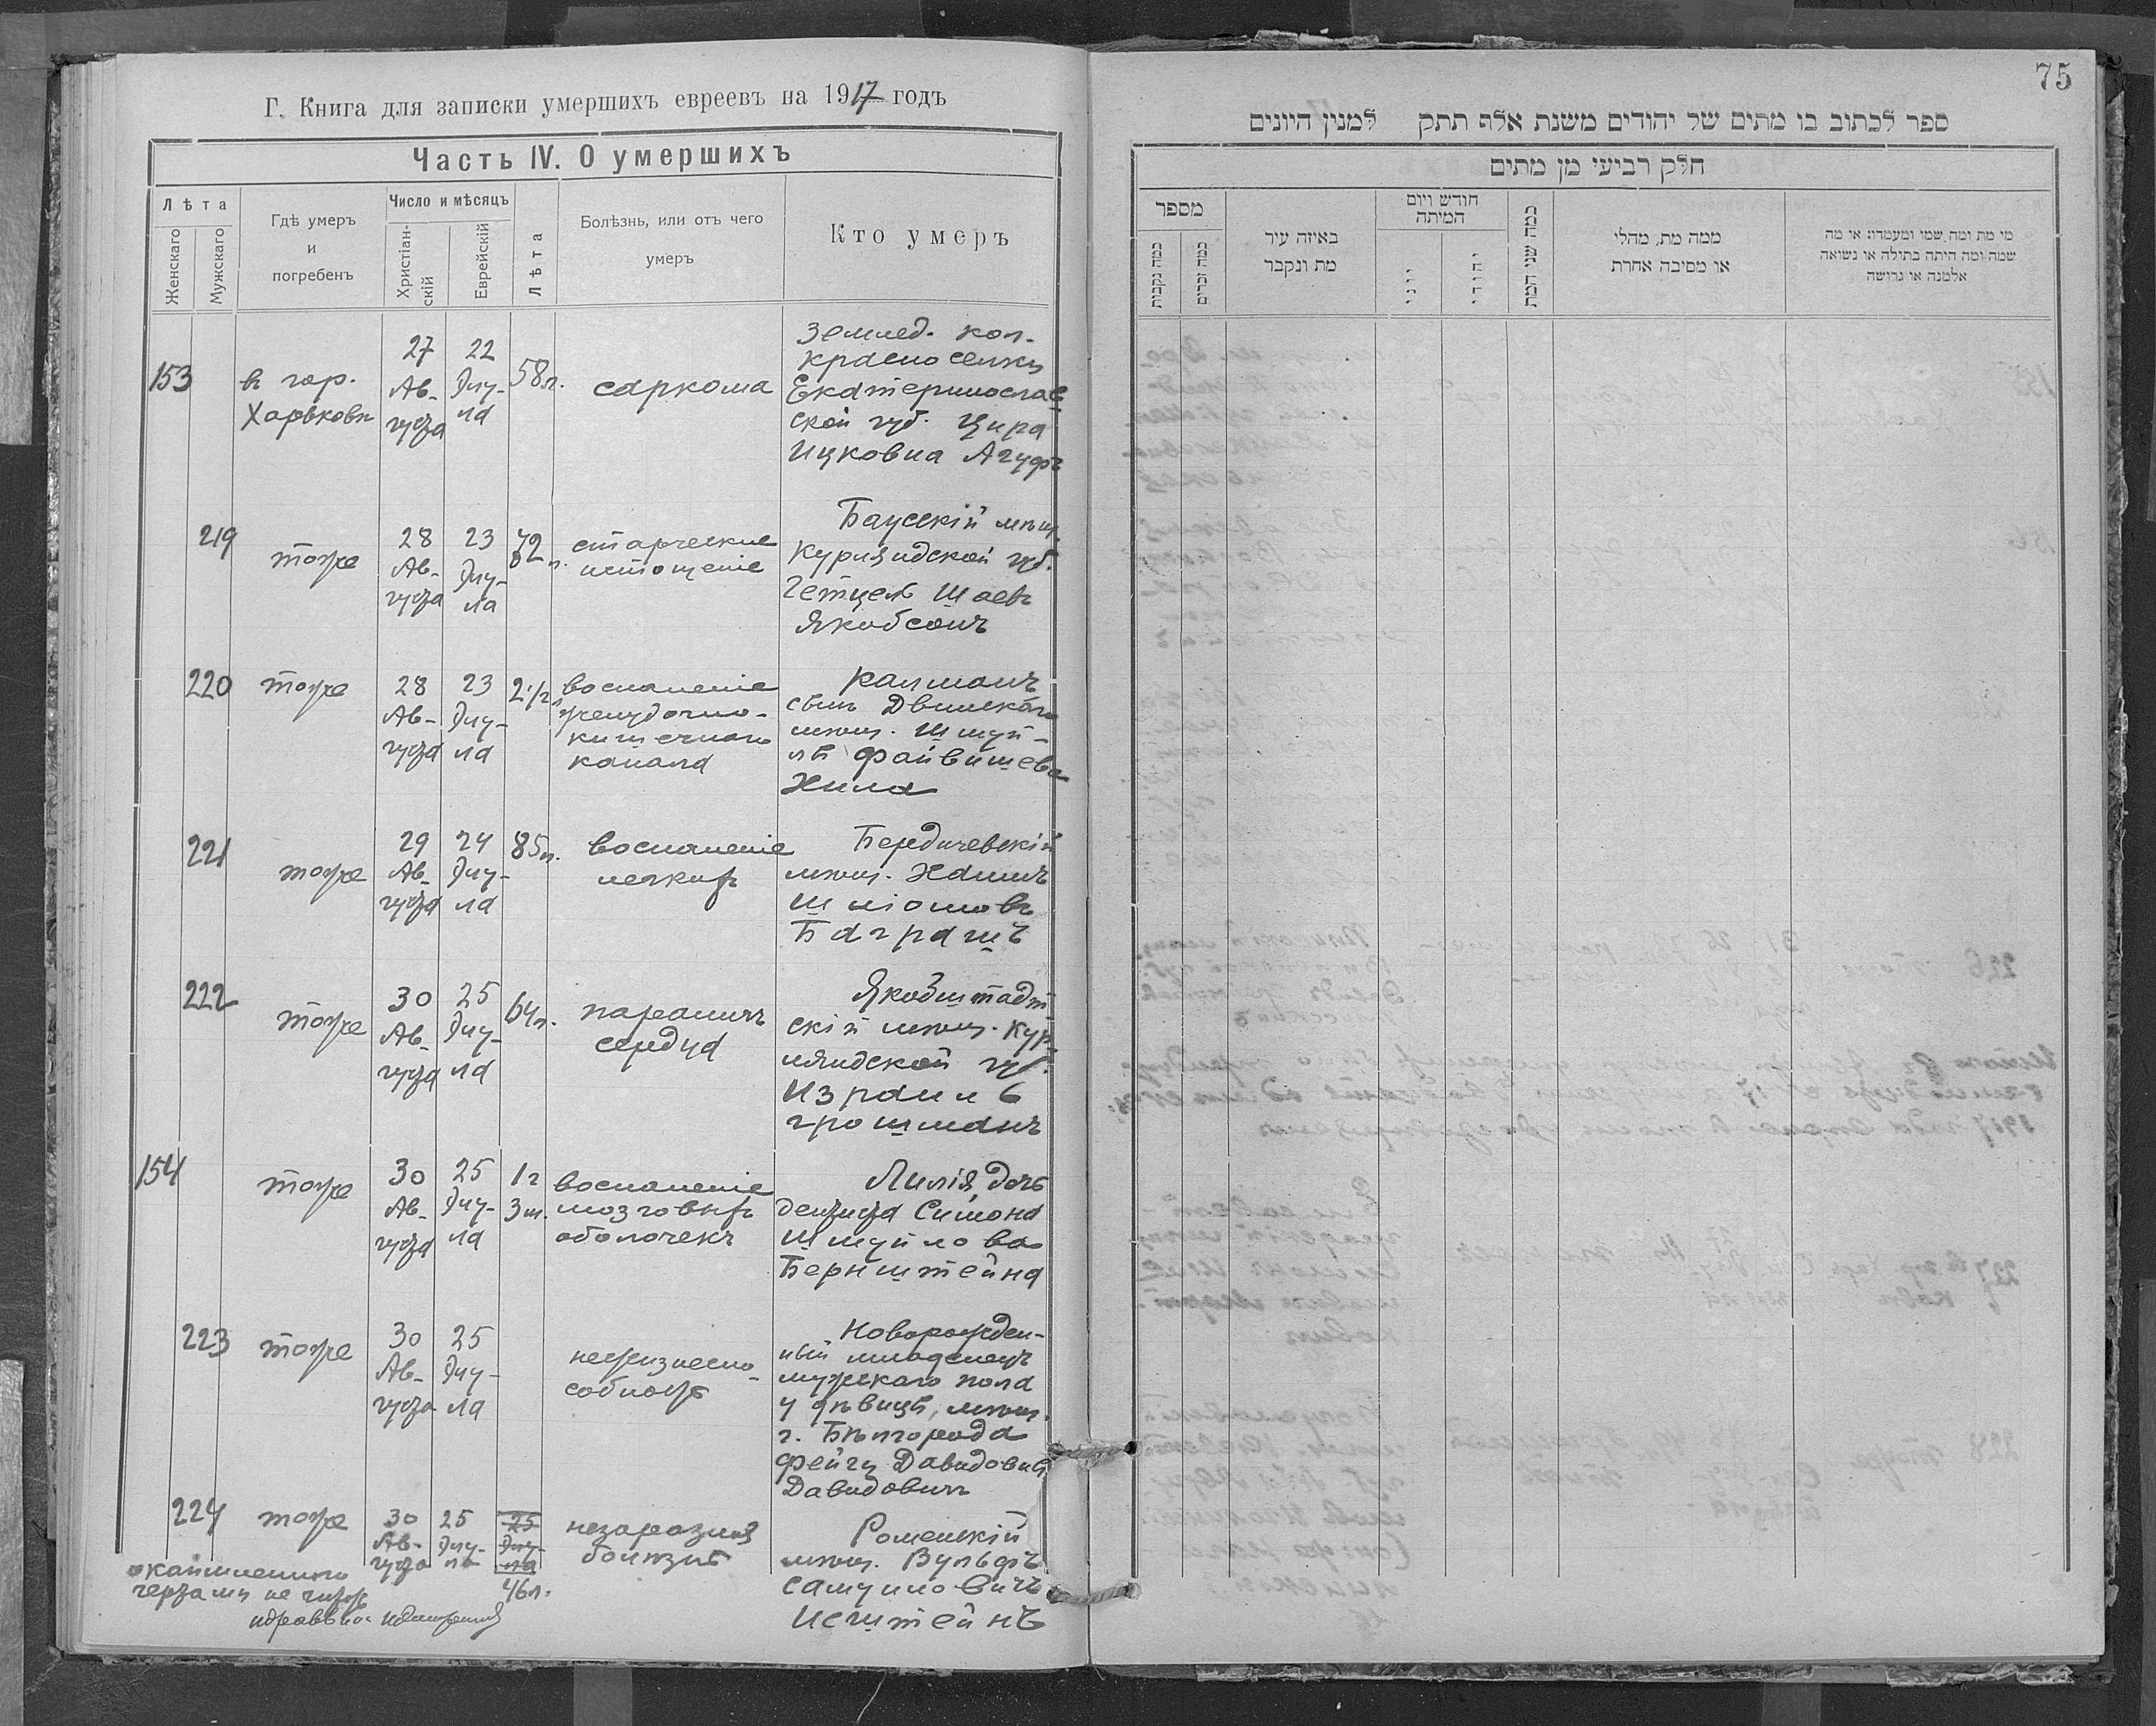 Г. Книга для записки умершихъ евреевъ на 1917 годъ
Часть IV. О умершихъ
Лѣта
Женскаго
Мужскаго
Гдѣ умеръ
и
погребенъ
Число и мѣсяцъ
Христіан-
скій
Еврейскій
Лѣта
Болѣзнь, или отъ чего
умеръ
Кто умеръ
153
в гор.
Харьковѣ
27
Ав-
густа
22
Элу-
ла
58 л.
саркома
Землед. кол.
Красноселки
Екатеринослав
ской губ. Цира
Ицковна
219
тоже
28
Ав-
густа
23
Элу-
ла
72 л.
старческое
истощеніе
Баусскій мѣщ.
Курляндской губ.
Гетцель Шаевъ
Якобсонъ
220
тоже
28
Ав-
густа
23
Элу-
ла
2 1/2
воспаленіе
желудочно-
кишечнаго
канала
Калманъ
сынъ Двинскаго
мѣщ. Шмуй-
лы Файвишева
221
тоже
29
Ав-
густа
24
Элу-
ла
85 л.
воспаленіе
легкихъ
Бердичевскій
мѣщ.
Шліомовъ
222
тоже
30
Ав-
густа
25
Элу-
ла
64 л.
параличъ
сердца
Якобштадт
скій мѣщ. Кур
ляндской губ.
Израиль
Грошманъ
154
тоже
30
Ав-
густа
25
Элу-
ла
1 г
3 м.
воспаленіе
мозговыхъ
оболочекъ
Лилія, дочь
дентиста Симона
Шмуйлова
Бернштейна
223
тоже
30
Ав-
густа
25
Элу-
ла
нежизнеспо-
собность
Новорожден-
ный младенецъ
мужскаго пола
у дѣвицы, мѣщ.
г. Бѣлгорода
Фейги Давидовны
Давидовичъ
224
тоже
30
Ав-
густа
25
Элу-
ла
25
Элу-
ла
46 л.
незаразная
болѣзнь
Роменскій
мѣщ. Вульфъ
Самуиловичъ
окаймленнаго
чертами не читать
75
ספר לכתוב בו מתים של יהודים משנת אלף תתק למנין היונים
חלק רביעי מן מתים
מספר
כמה נקבות
כמה זכרים
באיזה עיר
מת ונקבר
חודש ויום
המיתה
יוני
יהודי
כמה שני המת
ממה מת, מהלי
או מסיבה אחרת
מי מת ומה שמו ומעמדו: או מה
שמה ומה היתה בתולה או נשואה
אלמנה או גרושה